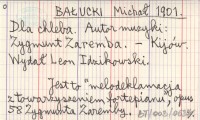 BAŁUCKI Michał 1901.
Dla chleba. Autor muzyki:
Zygmunt Zaremba. - Kijów.
Wydał Leon Idzikowski.
Jest to "melodeklamacja
z towarzyszeniem fortepianu, opus
58 Zygmunta Zaremby.